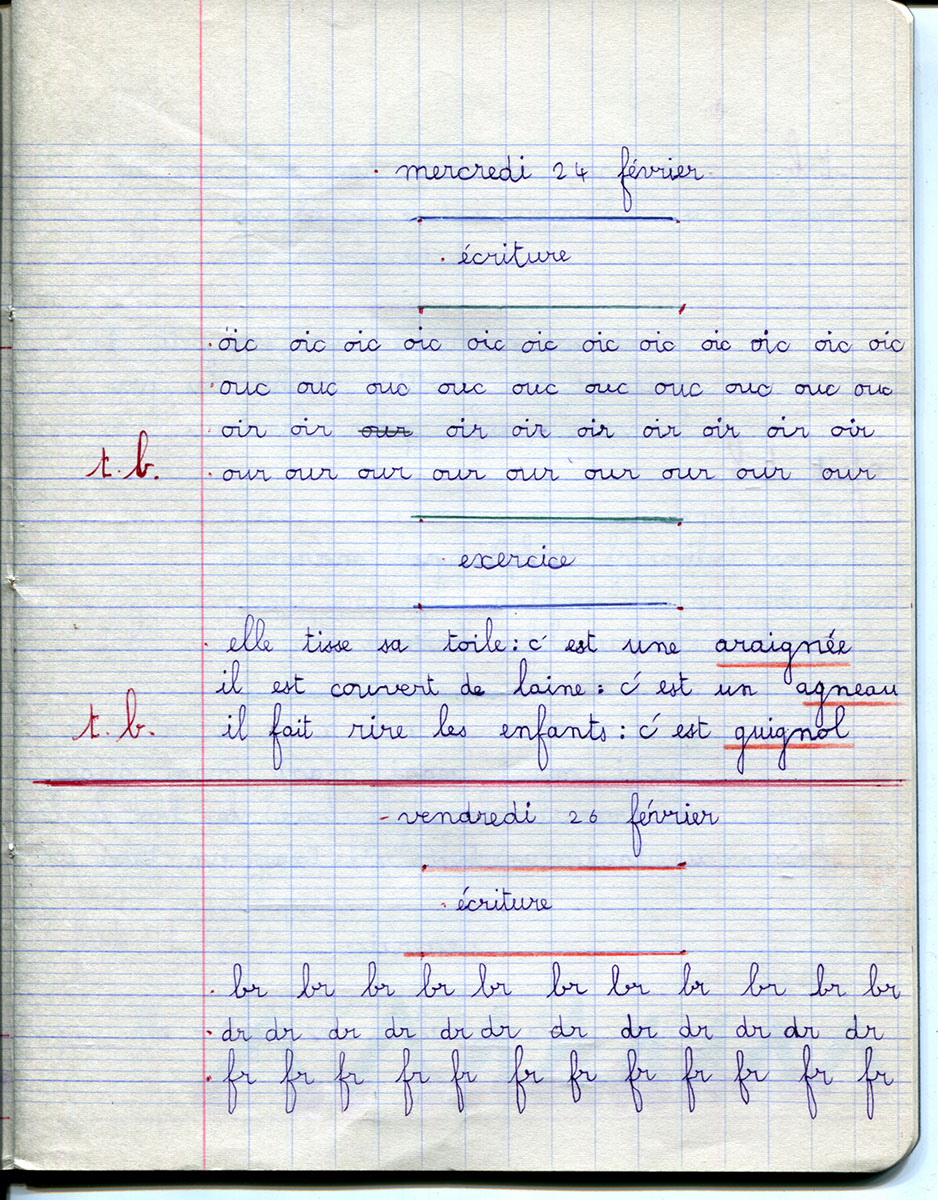 mercredi 24 février
écriture
oic oic oic oic oic oic oic oic oic oic oic oic
ouc ouc ouc ouc ouc ouc ouc ouc ouc ouc
oir oir our oir oir oir oir oir oir oir
t.b. our our our our our our our our our
exercice
elle tisse sa toile : c'est une araignée
il est couvert de laine : c'est un agneau
t.b. il fait rire les enfants : c'est guignol
vendredi 26 février
écriture
br br br br br br br br br br br
dr dr dr dr dr dr dr dr dr dr dr dr
fr fr fr fr fr fr fr fr fr fr fr fr